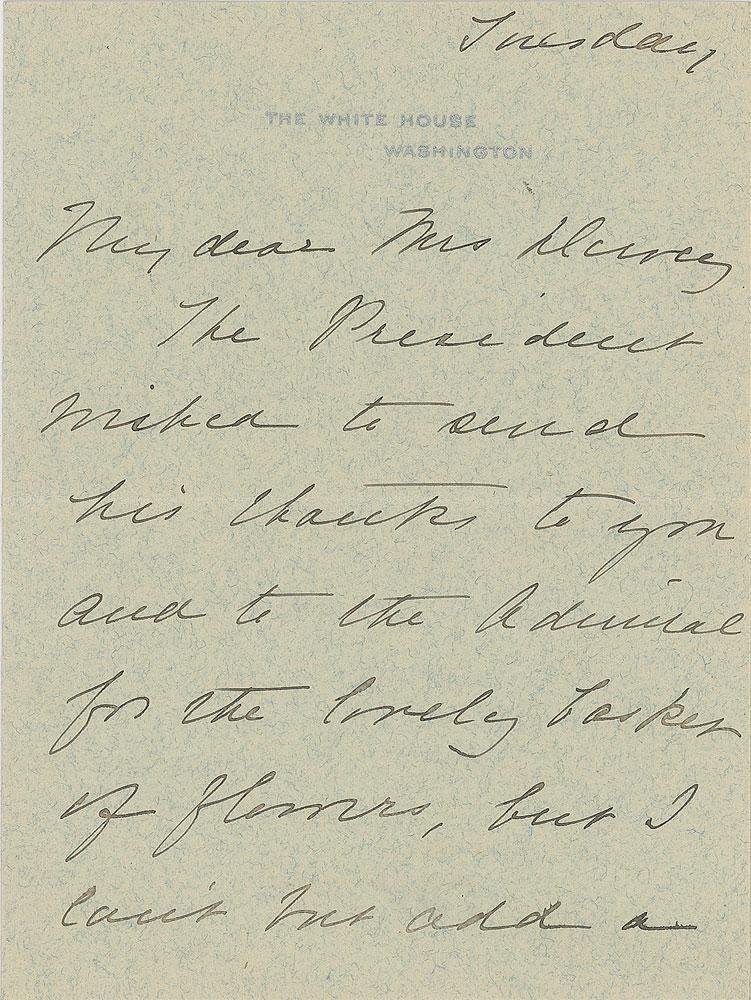 Tuesday
THE WHITE HOUSE
WASHINGTON
My dear Mrs Dewey
The President
wished to send
his thanks to you
and to the Admiral
for the lovely basket
of flowers, but I
can't but add a